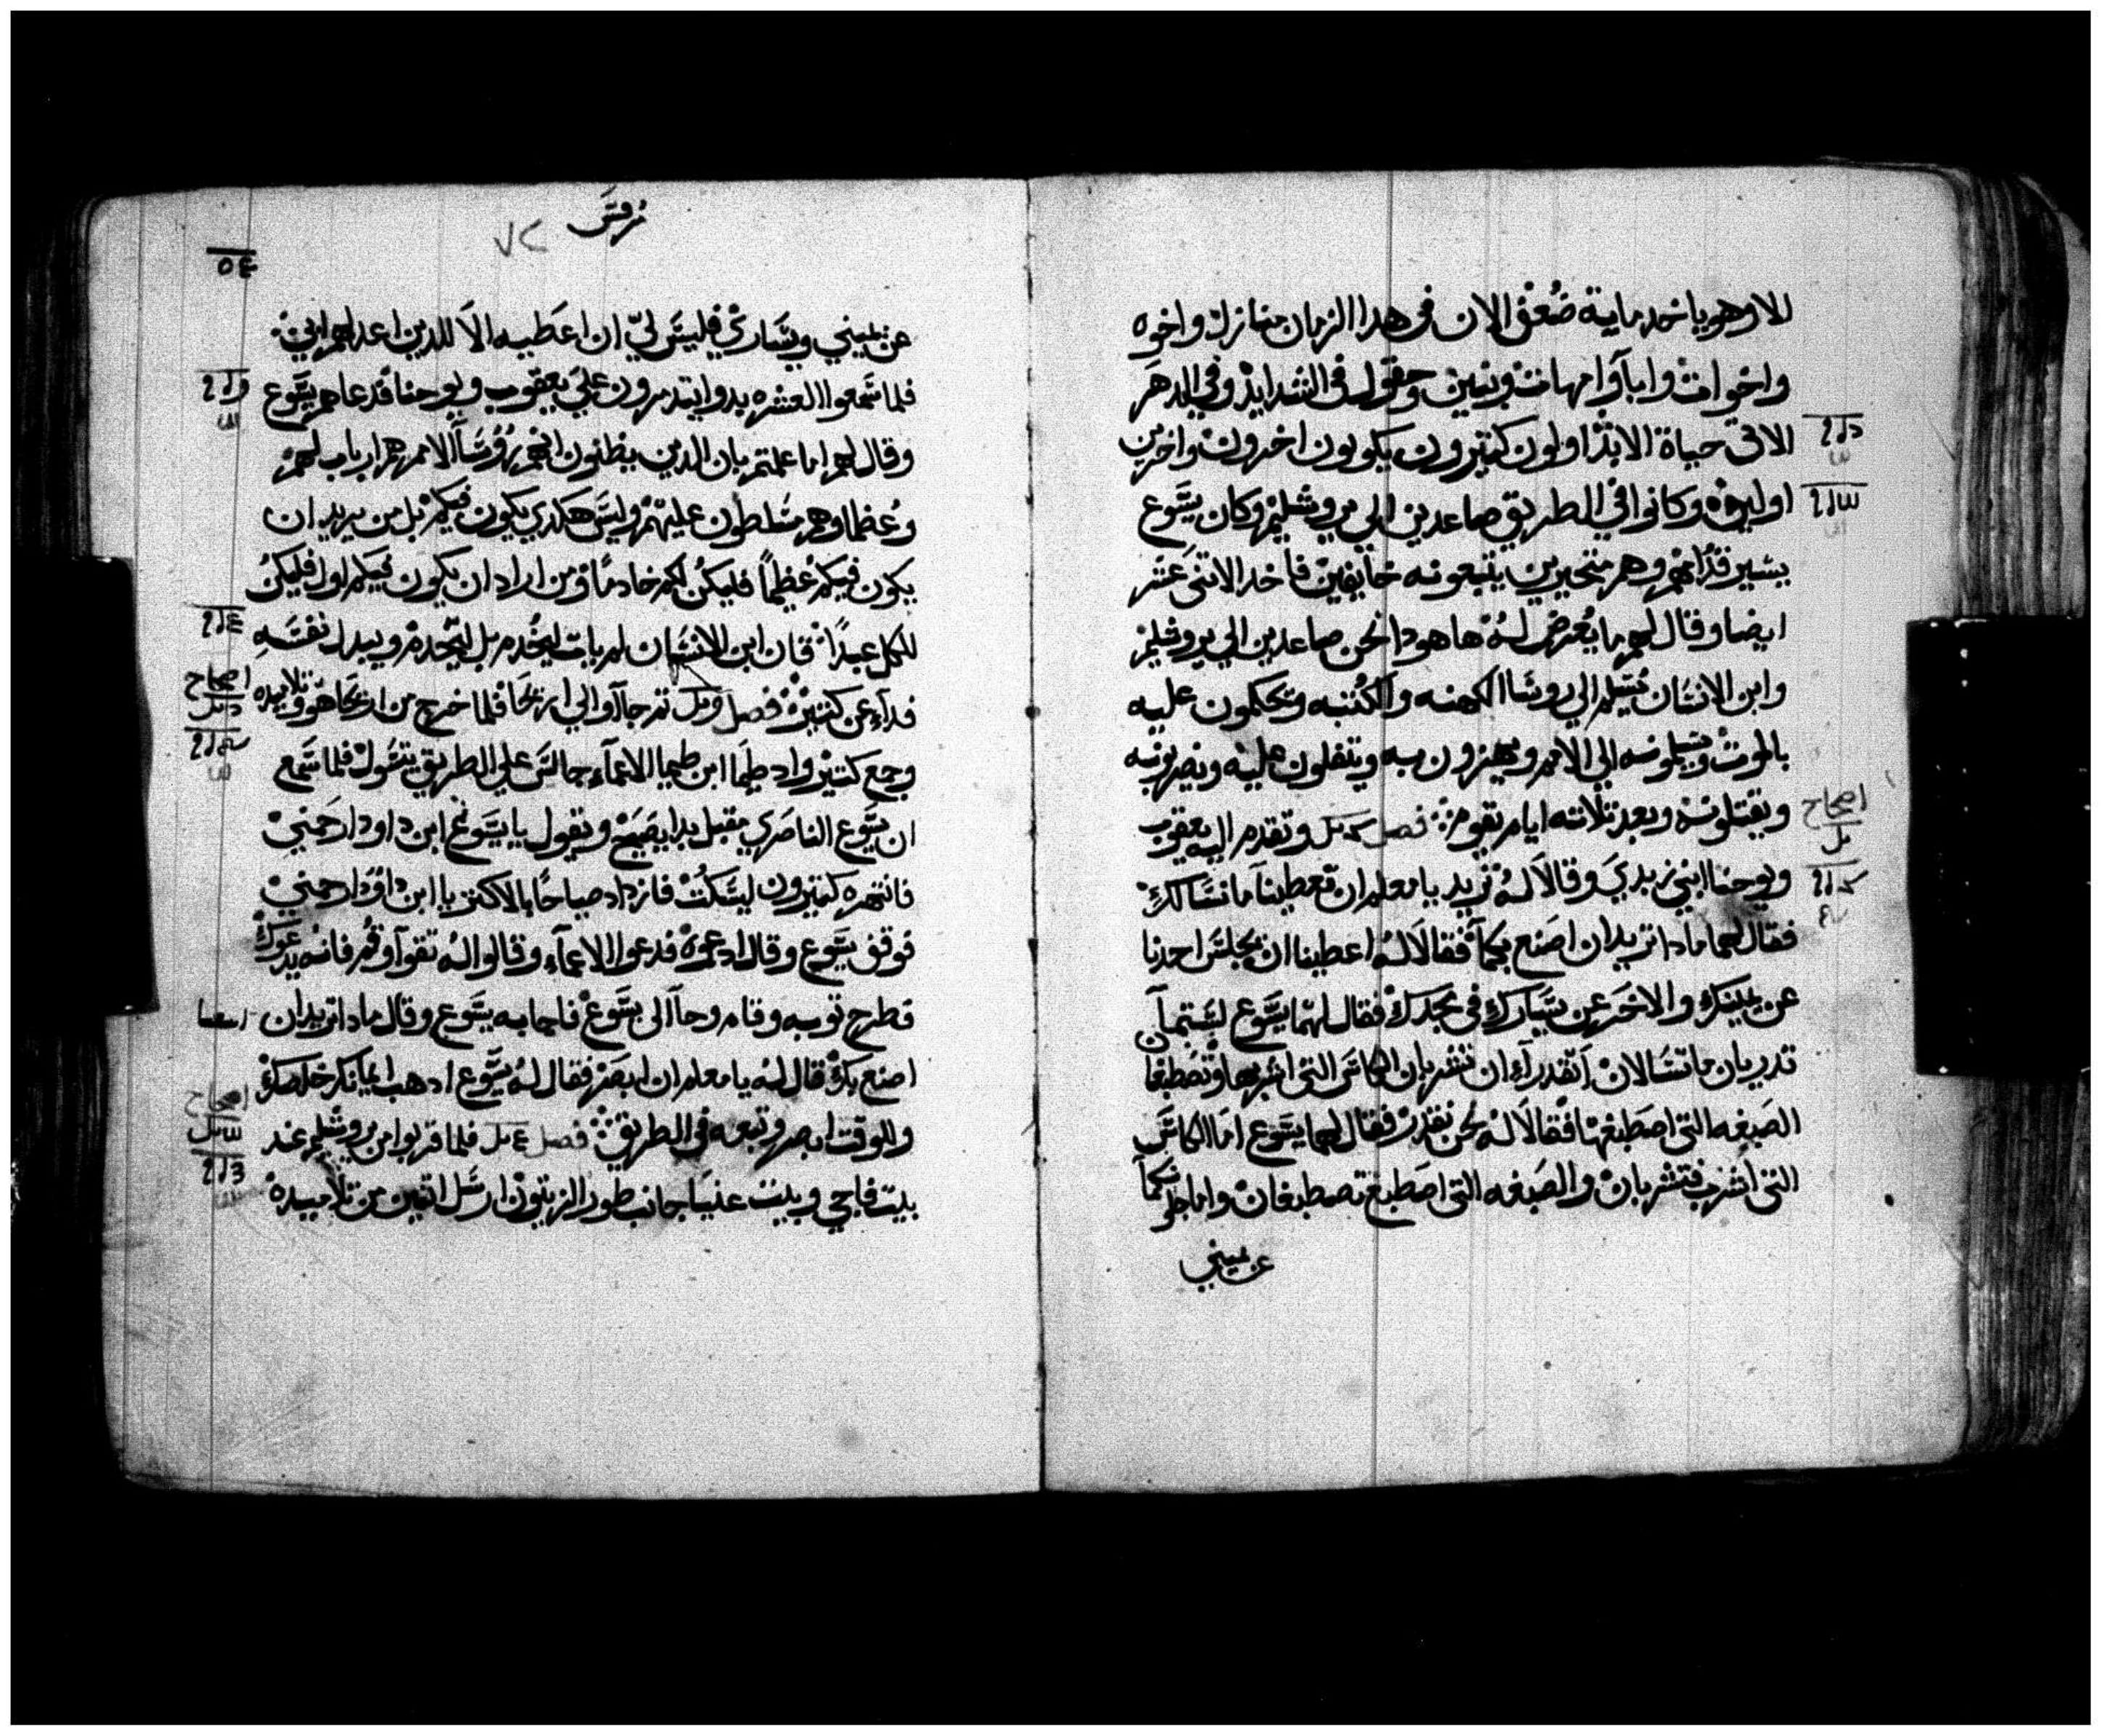 الا وهو ياخد ماية ضعف الان في هدا الزمان منازل واخوه
واخوات وابآ وامهات وبنين وحقول في الشدايد وفي الدهر
الاتي حياة الابد اولون كتيرون يكونون اخرون واخرين
اولين وكانوا في الطريق صاعدين الي يروشليم وكان يسوع
يسير قدامهم وهم متحيرين يتبعونه خايفين فاخد الاتني عشر
ايضا وقال لهم ما يعرض له ها هودا نحن صاعدين الي يروشليم
وابن الانسان يسلم الي روسا الكهنه والكتبه ويحكمون عليه
بالموت ويسلمونه الي الامم ويهزون به ويتفلون عليه ويضربونه
ويقتلونه وبعد تلاته ايام يقوم فصل وتقدم اليه يعقوب
ويوحنا ابني زبدي وقالا له نريد يا معلم ان تعطينا ما نسالك
فقال لهما مادا تريدان اصنع بكما فقالا له اعطينا ان يجلس احدنا
عن يمينك والاخر عن يسارك في مجدك فقال لهما يسوع لستما
تدريان ما تسالان اتقدرا ان تشربان الكاس التي اشربها وتصطبغا
الصبغه التي اصطبغها فقالا له نحن نقدر فقال لهما يسوع اما الكاس
التي اشرب فتشربان والصبغه التي اصطبغ تصطبغان واما جلوسكما
عن يميني
اصحاح
مرقس
٧٢
عن يميني ويساري فليس لي ان اعطيه الا للدين اعد لهم ابي
فلما سمعوا العشره بدوا يتدمرون علي يعقوب ويوحنا فدعاهم يسوع
وقال لهم اما علمتم بان الدين يظنون انهم روسآ الامم هم ارباب لهم
وعظماوهم مسلطون عليهم وليس هكدي يكون فيكم بل من يريد ان
يكون فيكم عظيماً فليكن لكم خادماً ومن اراد ان يكون فيكم اول فليكن
للكل عبداً فان ابن الانسان لم يات ليخدم بل ليخدم ويبدل نفسه
فدآء عن كتيرين فصل تم جاآوا الي اريحا فلما خرج من اريحا هو وتلاميده
وجمع كتير واد طيما ابن طيما الاعمآء جالس علي الطريق يتسول فلما سمع
ان يسوع الناصري مقبل بدا يصيح ويقول يا يسوع ابن داود ارحمني
فانتهره كتيرون ليسكت فازداد صياحاً بالاكتر يا ابن داود ارحمني
فوقف يسوع وقال ادعوه فدعوا الاعمآء وقالوا له تقوآ وقم فانه يدعوك
فطرح توبه وقام وجاآ الى يسوع فاجابه يسوع وقال مادا تريد ان
اصنع بك قال له يا معلم ان ابصر فقال له يسوع ادهب ايمانك خلصك
وللوقت ابصر وتبعه في الطريق فصل فلما قربوا من يروشليم عند
بيت فاجي وبيت عنيا جانب طور الزيتون ارسل اتنين من تلاميده
اصحاح
اصحاح